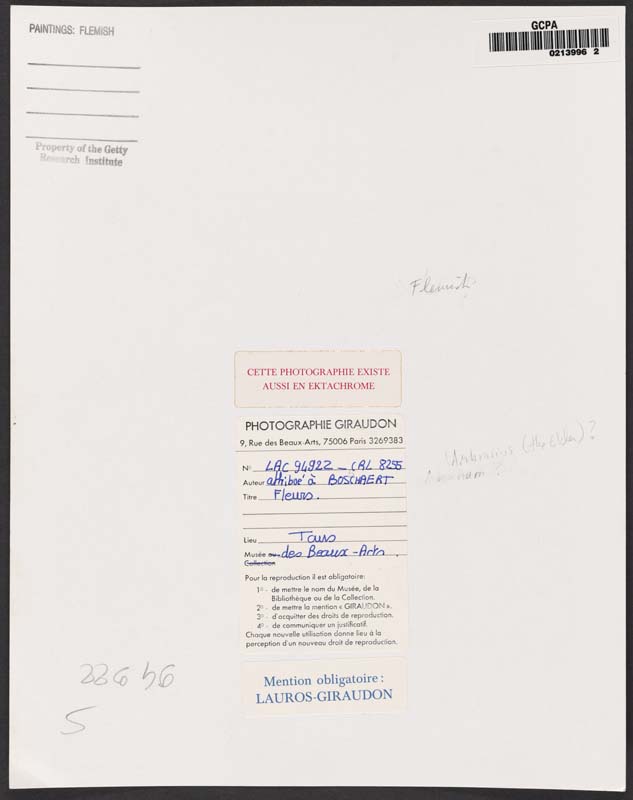 PAINTINGS: FLEMISH
GCPA
0213996 2
Property of the Getty
Research Institute
Flemish
CETTE PHOTOGRAPHIE EXISTE
AUSSI EN EKTACHROME
PHOTOGRAPHIE GIRAUDON
9, Rue des Beaux-Arts, 75006 Paris 3269383
No LAC 94922 - CRL 8255
Auteur attribué à BOSCHAERT
Titre Fleurs.
Lieu Tours
Musée ou des Beaux-Arts.
Collection
Ambrosius (the Elder)?
Abraham?
Pour la reproduction il est obligatoire:
1o - de mettre le nom du Musée, de la
Bibliothèque ou de la Collection.
2o - de mettre la mention « GIRAUDON ».
3o - d'acquitter des droits de reproduction.
4o - de communiquer un justificatif.
Chaque nouvelle utilisation donne lieu à la
perception d'un nouveau droit de reproduction.
Mention obligatoire:
LAUROS-GIRAUDON
5